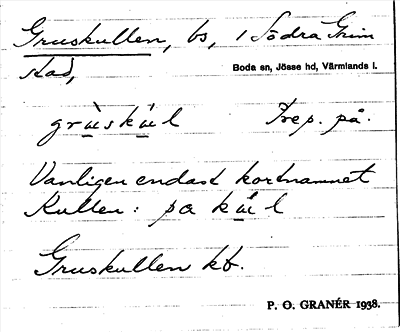 Gruskullen, bs, i Södra Grim
stad,
Boda sn, Jösse hd, Värmlands l.
grùskúl Prep. på.
Vanligen endast kortnamnet
Kullen: pa kúl
Gruskullen kb.
P. O. GRANÉR 1938.